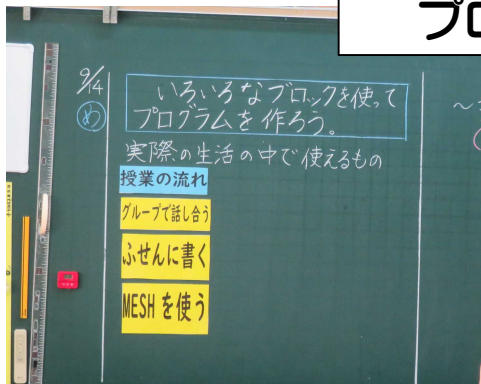 プロ
9/14
め
いろいろなブロックを使って
プログラムを作ろう。
実際の生活の中で使えるもの
授業の流れ
グループで話し合う
ふせんに書く
MESHを使う
～